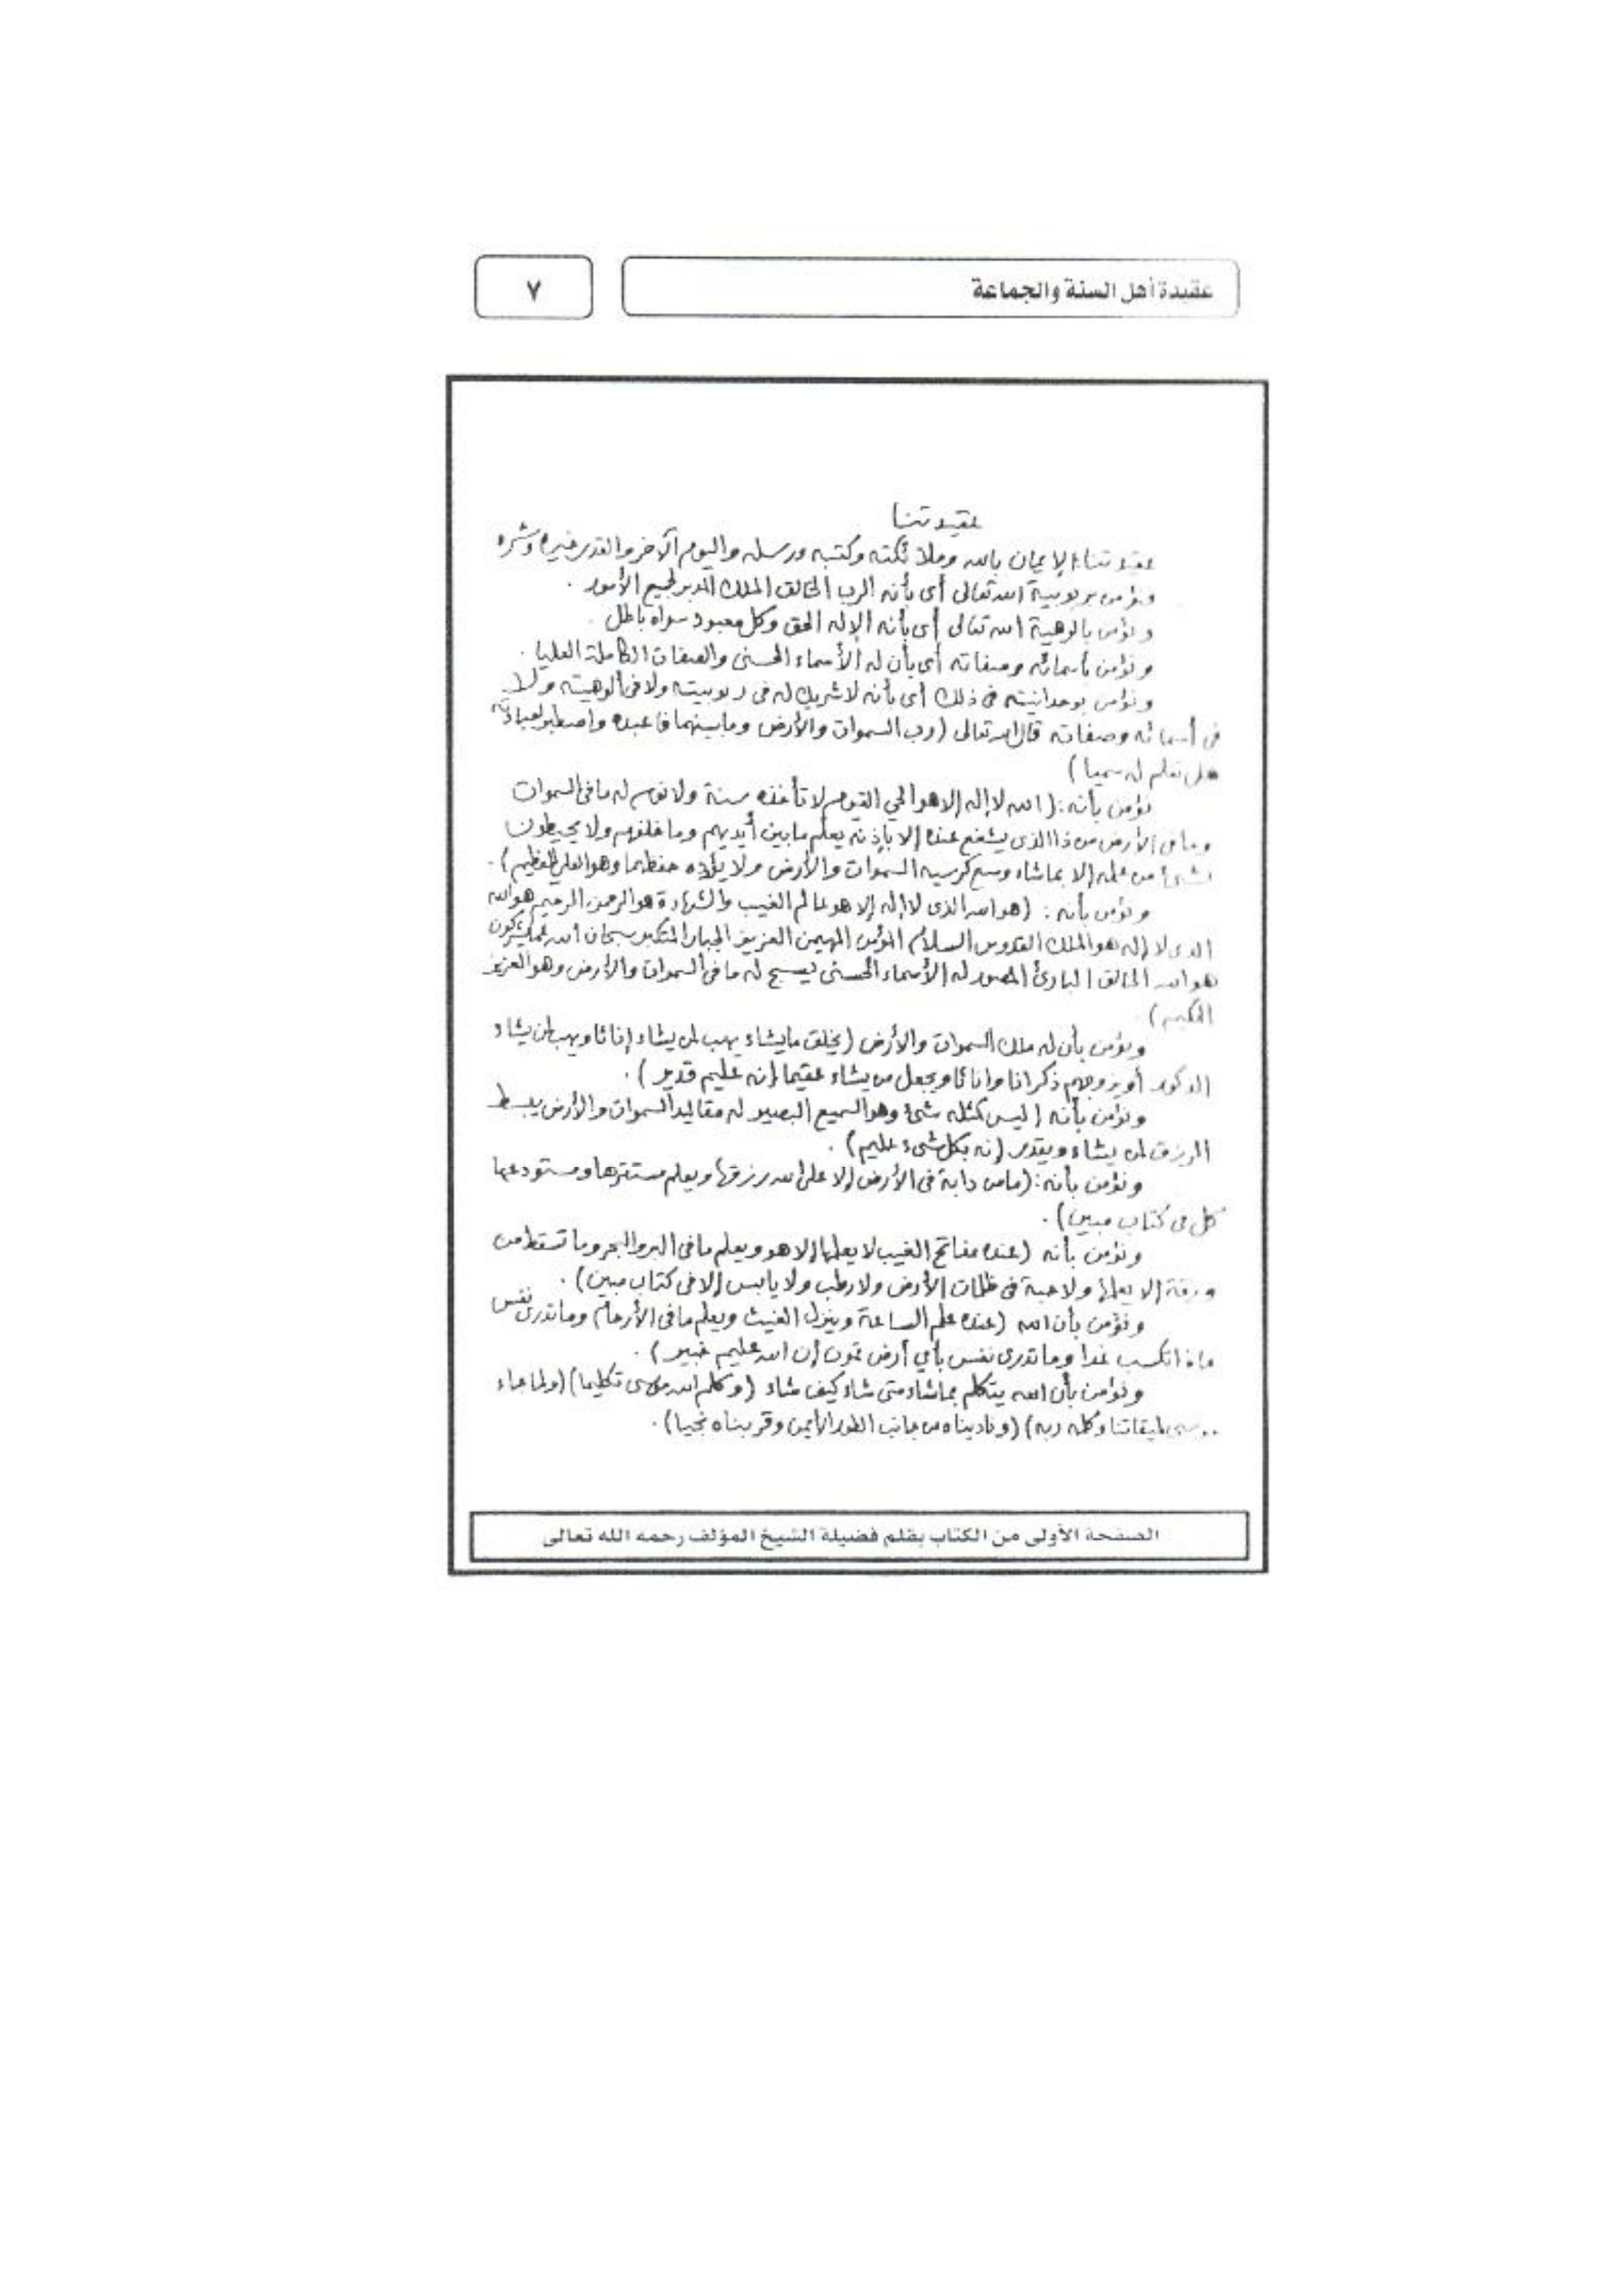 عقيدة أهل السنة والجماعة
٧
عقيدتنا
عقيدتنا: الإيمان بالله وملائكته وكتبه ورسله واليوم الآخر والقدر خيره وشره
ونؤمن بربوبية الله تعالى أى بأنه الرب الخالق الملك المدبر لجميع الأمور .
ونؤمن بألوهية الله تعالى أى بأنه الإله الحق وكل معبود سواه باطل .
ونؤمن بأسمائه وصفاته أى بأن له الأسماء الحسنى والصفات الكاملة العليا .
ونؤمن بوحدانيته فى ذلك أى بأنه لا شريك له فى ربوبيته ولا فى ألوهيته ولا
فى أسمائه وصفاته قال الله تعالى (رب السموات والأرض وما بينهما فاعبده واصطبر لعبادته
هل تعلم له سميا)
نؤمن بأنه: (الله لا إله إلا هو الحي القيوم لا تأخذه سنة ولا نوم له ما فى السموات
وما فى الأرض من ذا الذى يشفع عنده إلا بإذنه يعلم ما بين أيديهم وما خلفهم ولا يحيطون
بشىء من علمه إلا بما شاء وسع كرسيه السموات والأرض ولا يؤده حفظهما وهو العلي العظيم) .
ونؤمن بأنه : (هو الله الذى لا إله إلا هو عالم الغيب والشهادة هو الرحمن الرحيم هو الله
الذى لا إله هو الملك القدوس السلام المؤمن المهيمن العزيز الجبار المتكبر سبحان الله عما يشركون
هو الله الخالق البارئ المصور له الأسماء الحسنى يسبح له ما فى السموات والأرض وهو العزيز
الحكيم) .
ونؤمن بأن له ملك السموات والأرض (يخلق ما يشاء يهب لمن يشاء إناثا ويهب لمن يشاء
الذكور أو يزوجهم ذكرانا وإناثا ويجعل من يشاء عقيما إنه عليم قدير) .
ونؤمن بأنه (ليس كمثله شىء وهو السميع البصير له مقاليد السموات والأرض يبسط
الرزق لمن يشاء ويقدر إنه بكل شىء عليم) .
ونؤمن بأنه: (ما من دابة فى الأرض إلا على الله رزقها ويعلم مستقرها ومستودعها
كل فى كتاب مبين) .
ونؤمن بأنه (عنده مفاتح الغيب لا يعلمها إلا هو ويعلم ما فى البر والبحر وما تسقط من
ورقة إلا يعلمها ولا حبة فى ظلمات الأرض ولا رطب ولا يابس إلا فى كتاب مبين) .
ونؤمن بأن الله (عنده علم الساعة وينزل الغيث ويعلم ما فى الأرحام وما تدرى نفس
ماذا تكسب غدا وما تدرى نفس بأي أرض تموت إن الله عليم خبير) .
ونؤمن بأن الله يتكلم بما شاء متى شاء كيف شاء (وكلم الله موسى تكليما) (ولما جاء
موسى لميقاتنا وكلمه ربه) (وناديناه من جانب الطور الأيمن وقربناه نجيا) .
الصفحة الأولى من الكتاب بقلم فضيلة الشيخ المؤلف رحمه الله تعالى